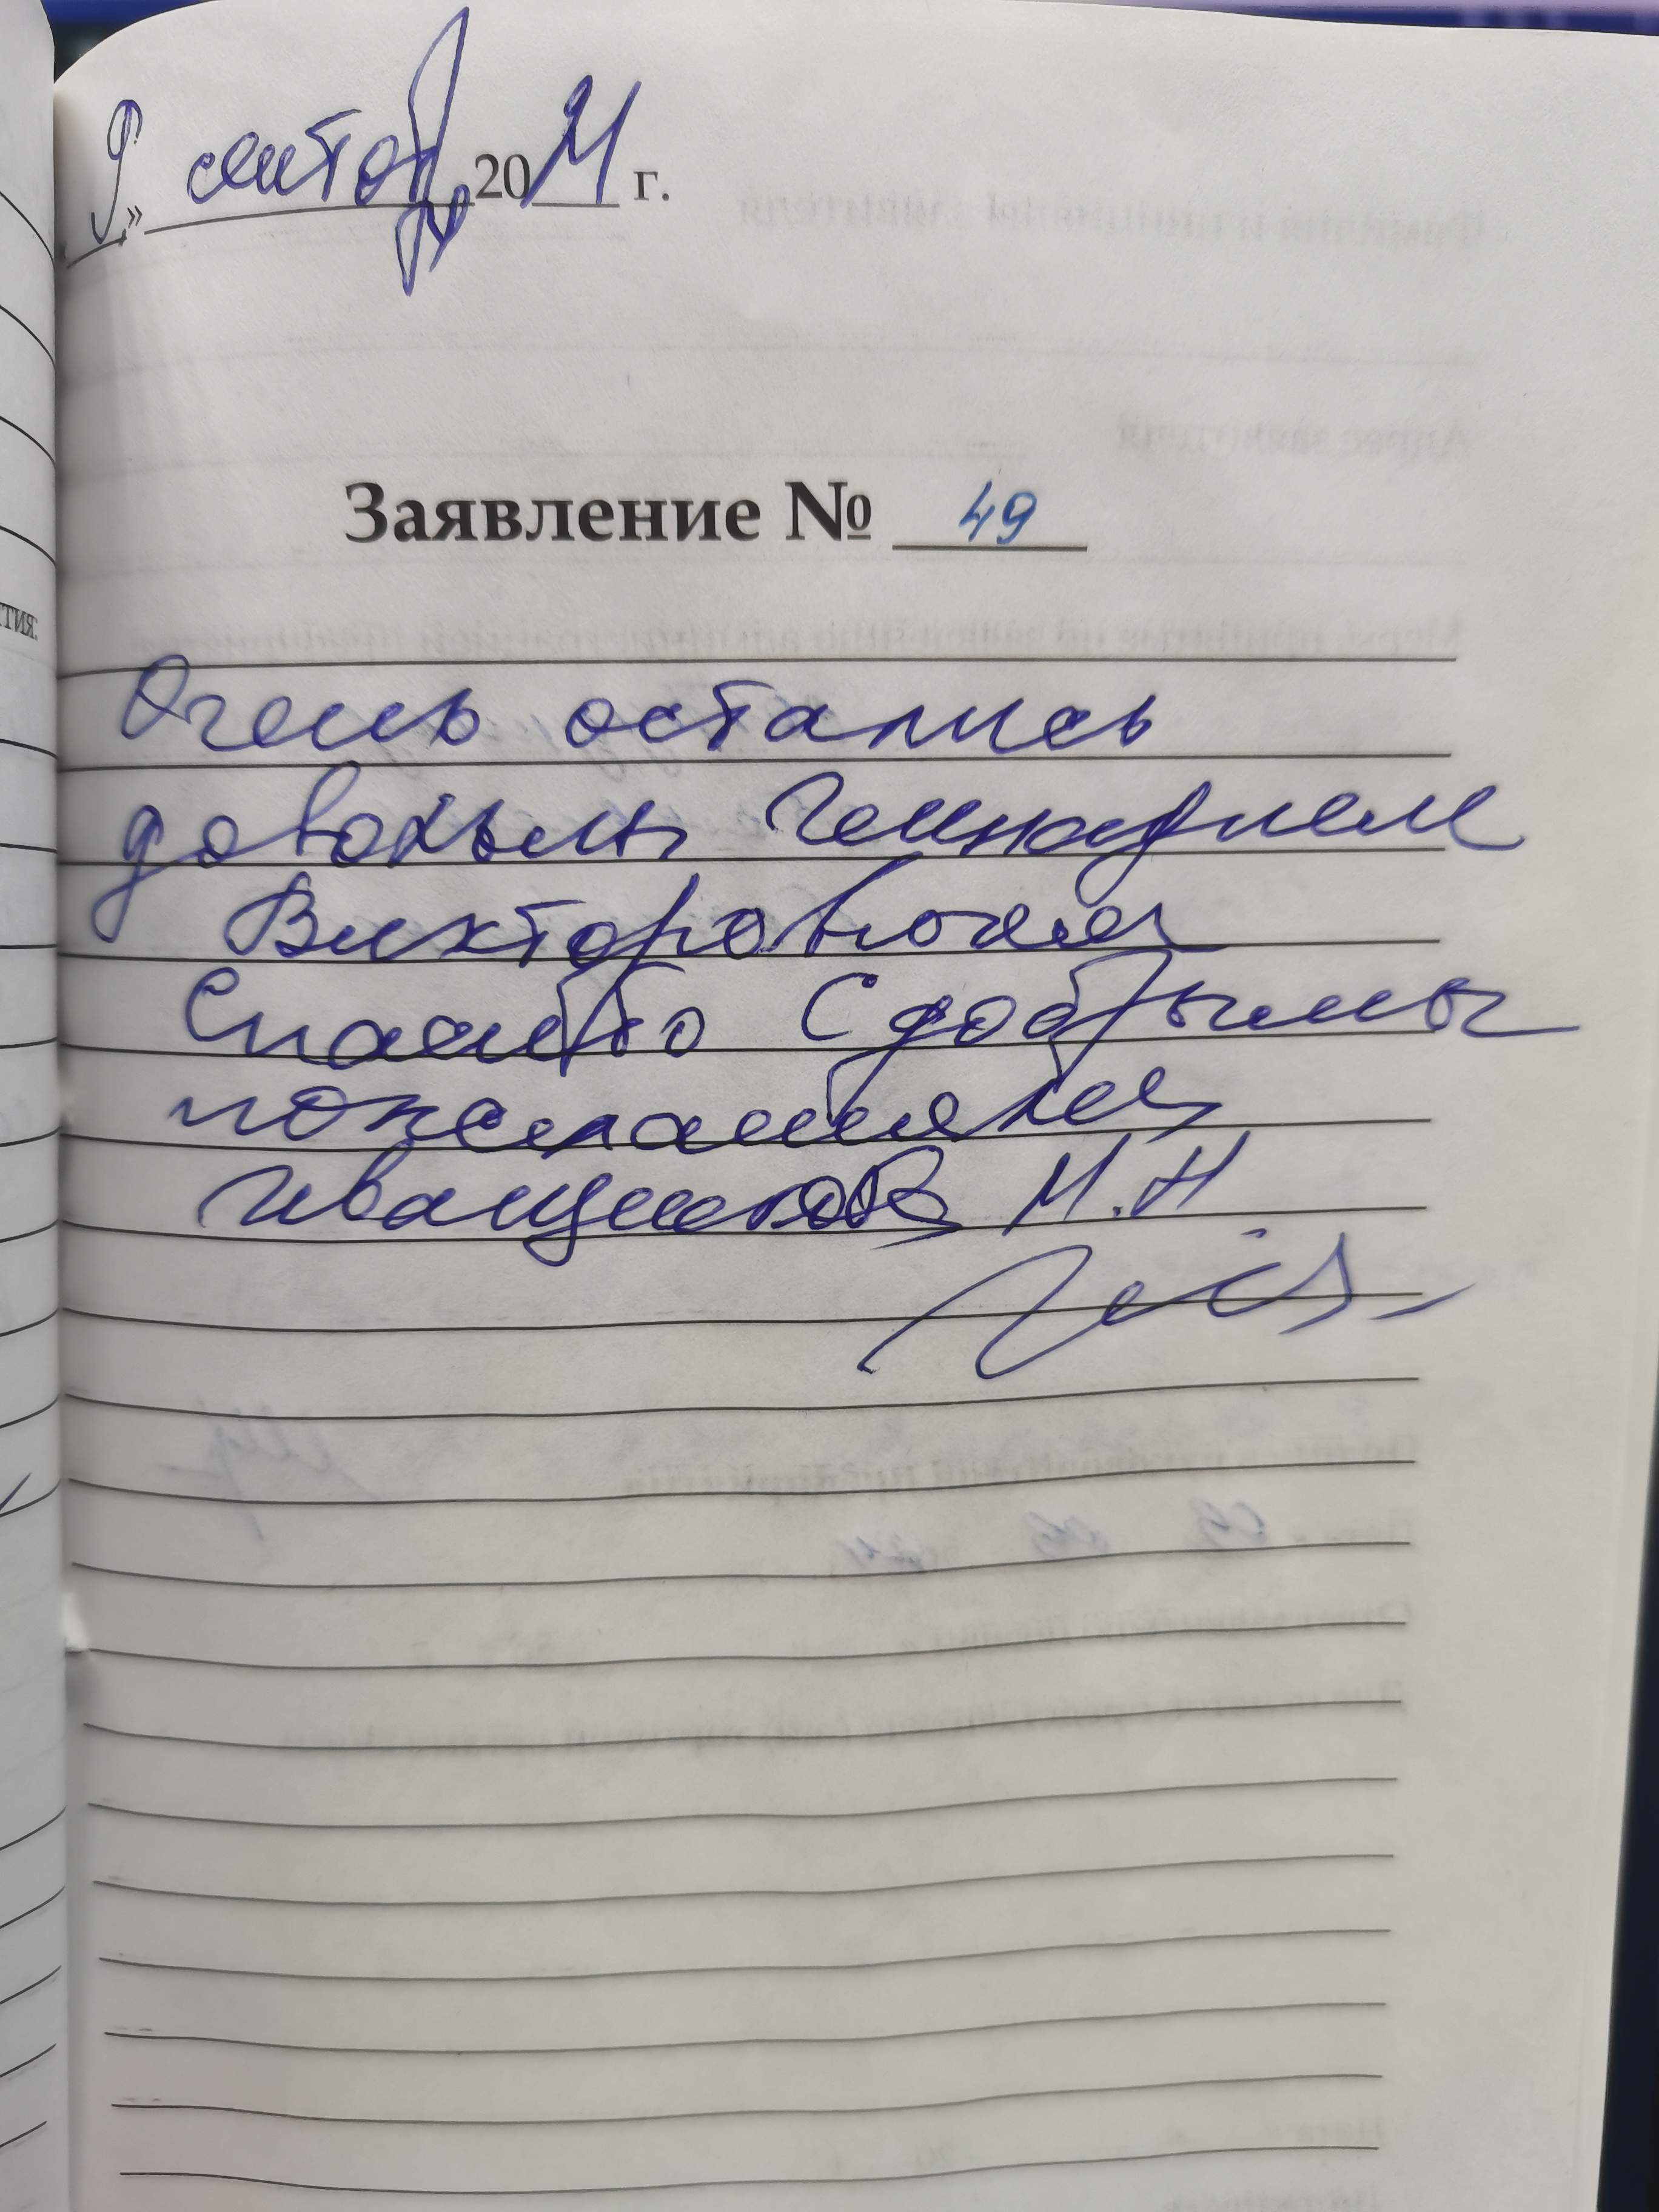 9» сентября 2024 г.
Заявление № 49
тия:
Очень остались
довольны Геннадием
Викторовичем
Спасибо С добрыми
пожеланиями
Иващенков М.Н